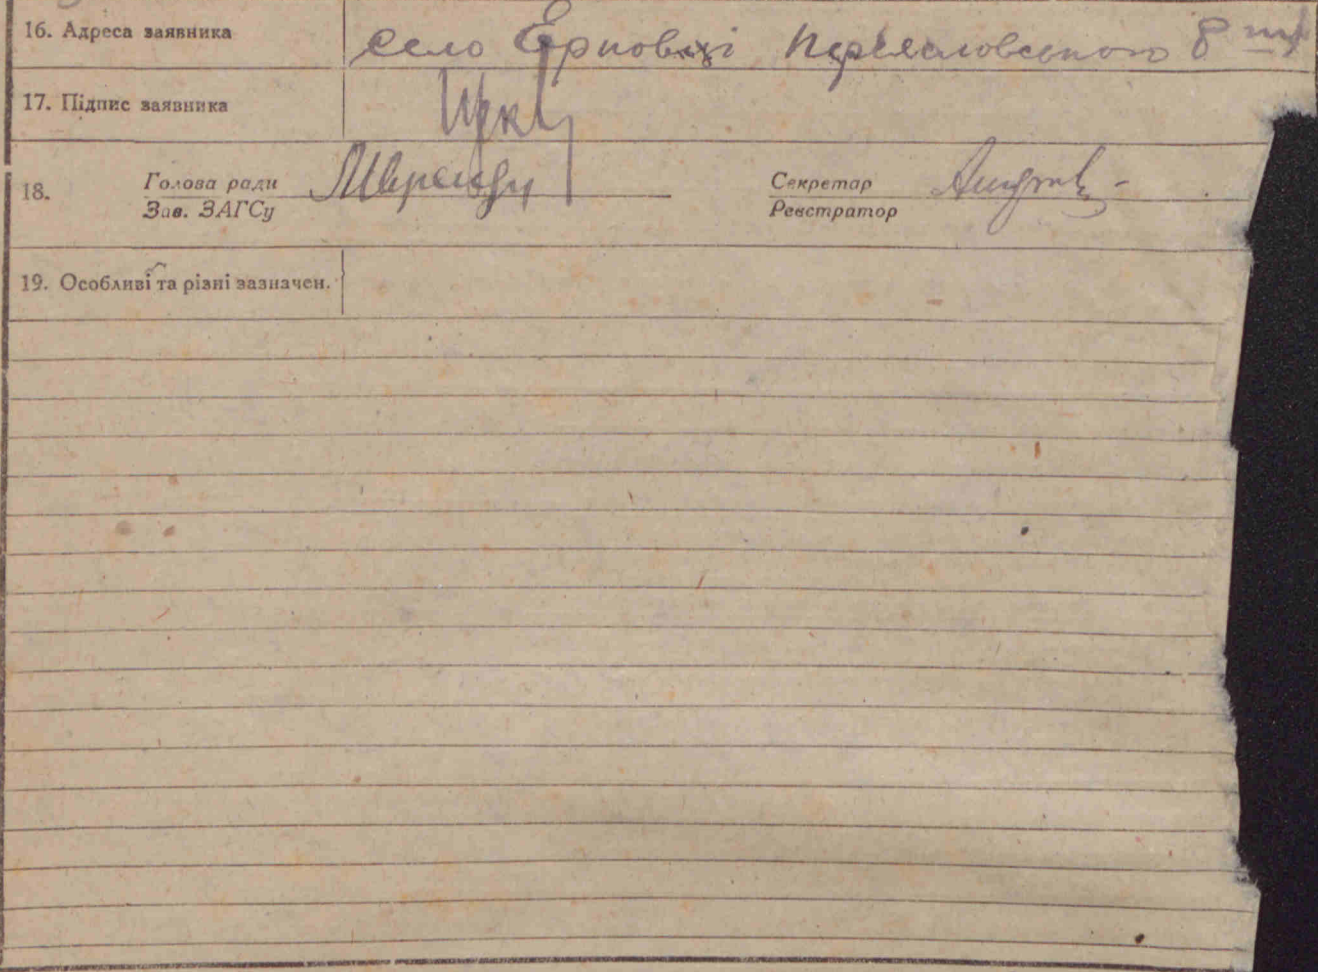 16. Адреса заявника село Ерковці Переяславського
17. Підпис заявника
18. Голова ради
Зав. ЗАГСу
Секретар
Реєстратор
19. Особливі та різні зазначен.